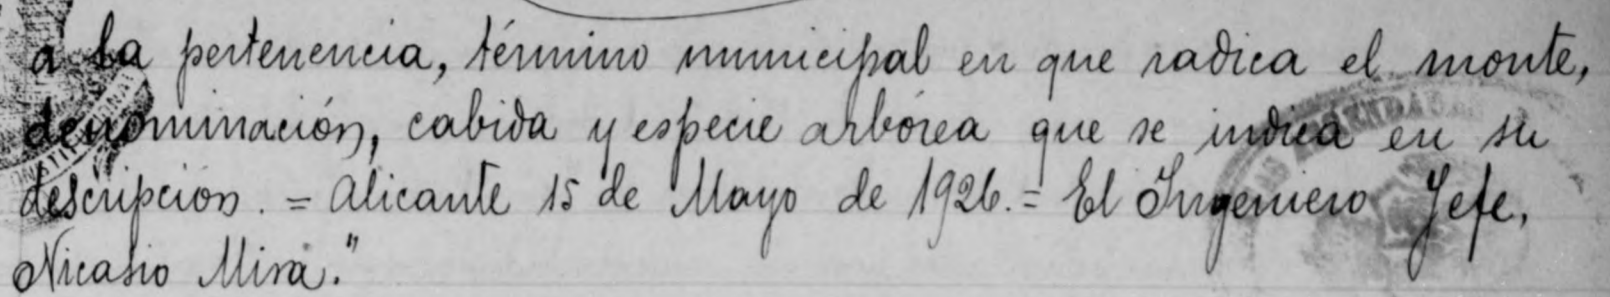 á la pertenencia, término municipal en que radica el monte,
denominación, cabida y especie arbórea que se indica en su
descripción. = Alicante 15 de Mayo de 1926. = El Ingeniero Jefe,
Nicasio Mira."